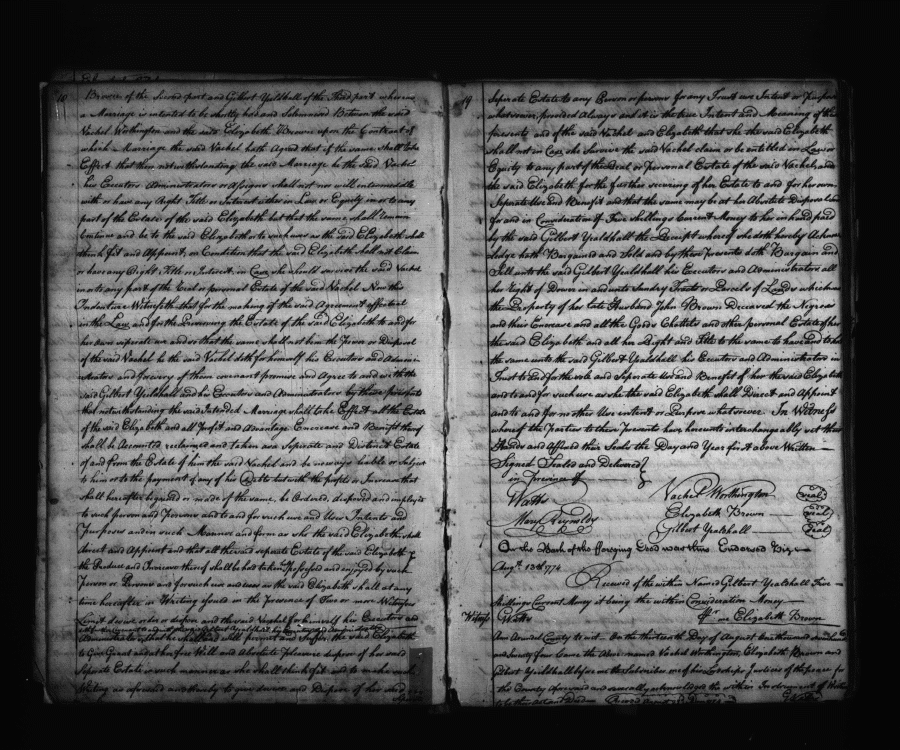 Browne of the Second part and Gilbert Yealdhall of the Third part whereas
a Marriage is intended to be shortly had and Solemnized Between the said
Vachel Worthington and the said Elizabeth Browne upon the Contract of
which Marriage the said Vachel hath Agreed that if the same shall take
Effect that then notwithstanding the said Marriage he the said Vachel
his Executors Administrators or Assigns shall not nor will intermeddle
with or have any Right Title or Interest either in Law or Equity in or to any
part of the Estate of the said Elizabeth but that the same shall
continue and be to the said Elizabeth or to such uses as the said Elizabeth shall
think fit and Appoint, on Condition that the said Elizabeth shall not Claim
or have any Right Title or Interest in Case she should survive the said Vachel
in or to any part of the Real or personal Estate of the said Vachel Now this
Indenture Witnesseth that for the making of the said Agreement effectual
in the Law and for the Preserving the Estate of the said Elizabeth to and for
her own seperate use and so that the same shall not be in the Power or Disposal
of the said Vachel he the said Vachel doth for himself his Executors and Admini
strators and for every of them covenant promise and Agree to and with the
said Gilbert Yealdhall and his Executors and Administrators by these presents
that notwithstanding the said Intended Marriage shall take Effect all the Estate
of the said Elizabeth and all Profit and Advantage Encrease and Benefit thereof
shall be Accounted reclaimed and taken as a Seperate and Distinct Estate
of and from the Estate of him the said Vachel and be no ways liable or Subject
to him or to the payment of any of his Debts but with the profits or Increase that
shall hereafter be gained or made of the same, be Ordered, disposed and employed
to such person and Persons and to and for such use and Uses Intents and
Purposes and in such Manner and form as she the said Elizabeth shall
direct and Appoint and that all the said seperate Estate of the said Elizabeth &
the Produce and Increase thereof shall be had taken Possessed and enjoyed by such
Person or Persons and for such use and uses as the said Elizabeth shall at any
time hereafter in Writing should in the Presence of Two or more Witnesses
Limit devise order or dispose and the said Vachel for himself his Executors and
Administrators that he shall and will Permit and Suffer the said Elizabeth
to Give Grant and at her free Will and Absolute Pleasure dispose of her said
Seperate Estate in such manner as she shall think fit and to make such
Writing as aforesaid and thereby to give devise and Dispose of her said
19
Seperate Estate to any Person or persons for any Trust use Intent or Purpose
whatsoever, provided Always and it is the true Intent and Meaning of these
presents and of the said Vachel and Elizabeth that she the said Elizabeth
shall not in Case she Survive the said Vachel claim or be entitled in Law or
Equity to any part of the Real or Personal Estate of the said Vachel, and
the said Elizabeth for the further securing of her Estate to and for her own
Seperate Use and Benefit and that the same may be at her Absolute Disposal
for and in Consideration of Five shillings Current Money to her in hand paid
by the said Gilbert Yealdhall the Receipt whereof she doth hereby Acknow
ledge hath Bargained and Sold and by these Presents doth Bargain and
Sell unto the said Gilbert Yealdhall his Executors and Administrators all
her Right of Dower in and unto Sundry Tracts or Parcels of Land which was
the Property of her late Husband John Brown Deceased the Negroes
and their Encrease and all the Goods Chattels and other personal Estate of her
the said Elizabeth and all her Right and Title to the same to have and to hold
the same unto the said Gilbert Yealdhall his Executors and Administrators in
Trust to and for the sole and Seperate Use and Benefit of her the said Elizabeth
and to and for such use as she the said Elizabeth shall Direct and Appoint
and to and for no other Use intent or Purpose whatsoever. In Witness
whereof the Parties to these Presents have hereunto interchangeably set their
Hands and Affixed their Seals the Day and Year first above Written
Signed Sealed and Delivered
in Presence of
Watts Vachel Worthington Seal
Mary Reynolds Elizabeth Brown Seal
Gilbert Yealdhall Seal
On the Back of the foregoing Deed was thus Endorsed Viz
Augt 13th 1774
Received of the within Named Gilbert Yealdhall Five
shillings Current Money it being the within Consideration Money
Witness Watts pr me Elizabeth Brown
Ann Arundel County to wit. On the thirteenth Day of August One thousand
and Seventy four Came the Above named Vachel Worthington, Elizabeth Brown and
Gilbert Yealdhall before me the Subscriber one of his Lordships Justices of the peace for
the County Aforesaid and severally acknowledged the within Instrument of Writing
to be their Act and Deed